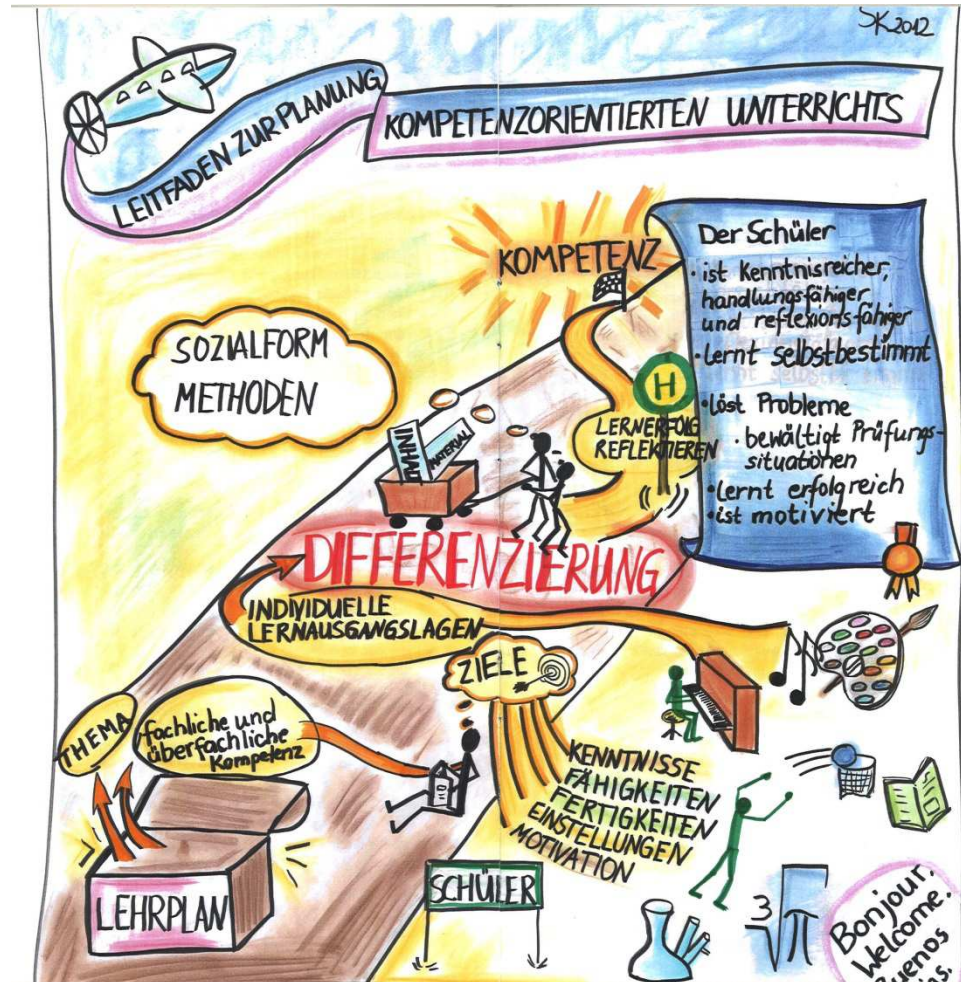 SK2012
LEITFADEN ZUR PLANUNG
KOMPETENZORIENTIERTEN UNTERRICHTS
KOMPETENZ
Der Schüler
• ist kenntnisreicher,
handlungsfähiger
und reflexionsfähiger
• lernt selbstbestimmt
• löst Probleme
• bewältigt Prüfungs-
situationen
• lernt erfolgreich
• ist motiviert
SOZIALFORM
METHODEN
H
LERNERFOLG
REFLEKTIEREN
INHALT
MATERIAL
DIFFERENZIERUNG
INDIVIDUELLE
LERNAUSGANGSLAGEN
ZIELE
THEMA
fachliche und
überfachliche
Kompetenz
KENNTNISSE
FÄHIGKEITEN
FERTIGKEITEN
EINSTELLUNGEN
MOTIVATION
LEHRPLAN
SCHÜLER
3√π
Bonjour.
Welcome.
Buenos